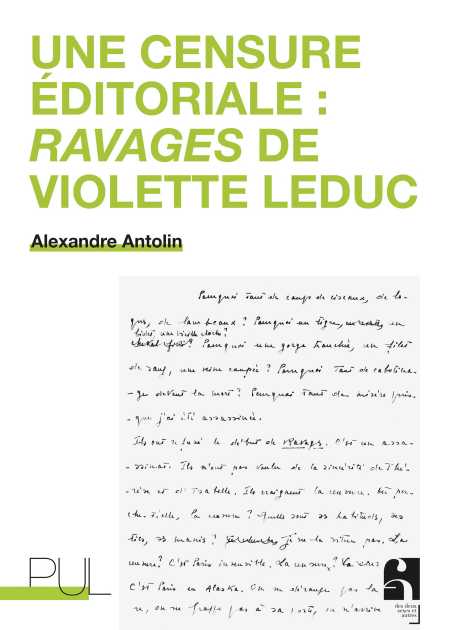 UNE CENSURE
ÉDITORIALE :
RAVAGES DE
VIOLETTE LEDUC
Alexandre Antolin
Pourquoi tant de coups de ciseaux, de lo-
ques, de lambeaux ? Pourquoi un tigre, un
biche, une vieille cloche ?
Pourquoi une gorge tranchée, un filet
de sang, une veine coupée ? Pourquoi tant de cabotina-
-ge devant la mort ? Pourquoi tant de misère puis-
-que j'ai été assassinée.
Ils ont refusé le début de Ravages. C'est un assa-
-ssinat. Ils n'ont pas voulu de la sincérité de Thé-
-rèse et d'Isabelle. Ils craignent la censure.
la censure ? Quelles sont ses habitudes, ses
tics, ses manies ? je ne la vois pas. La
censure ? C'est Paris invisible. La censure ? La
C'est Paris en Alaska. On se dérange pas la
on ne frappe pas à sa porte, on n'arrive
PUL
des deux
sexes et
autres